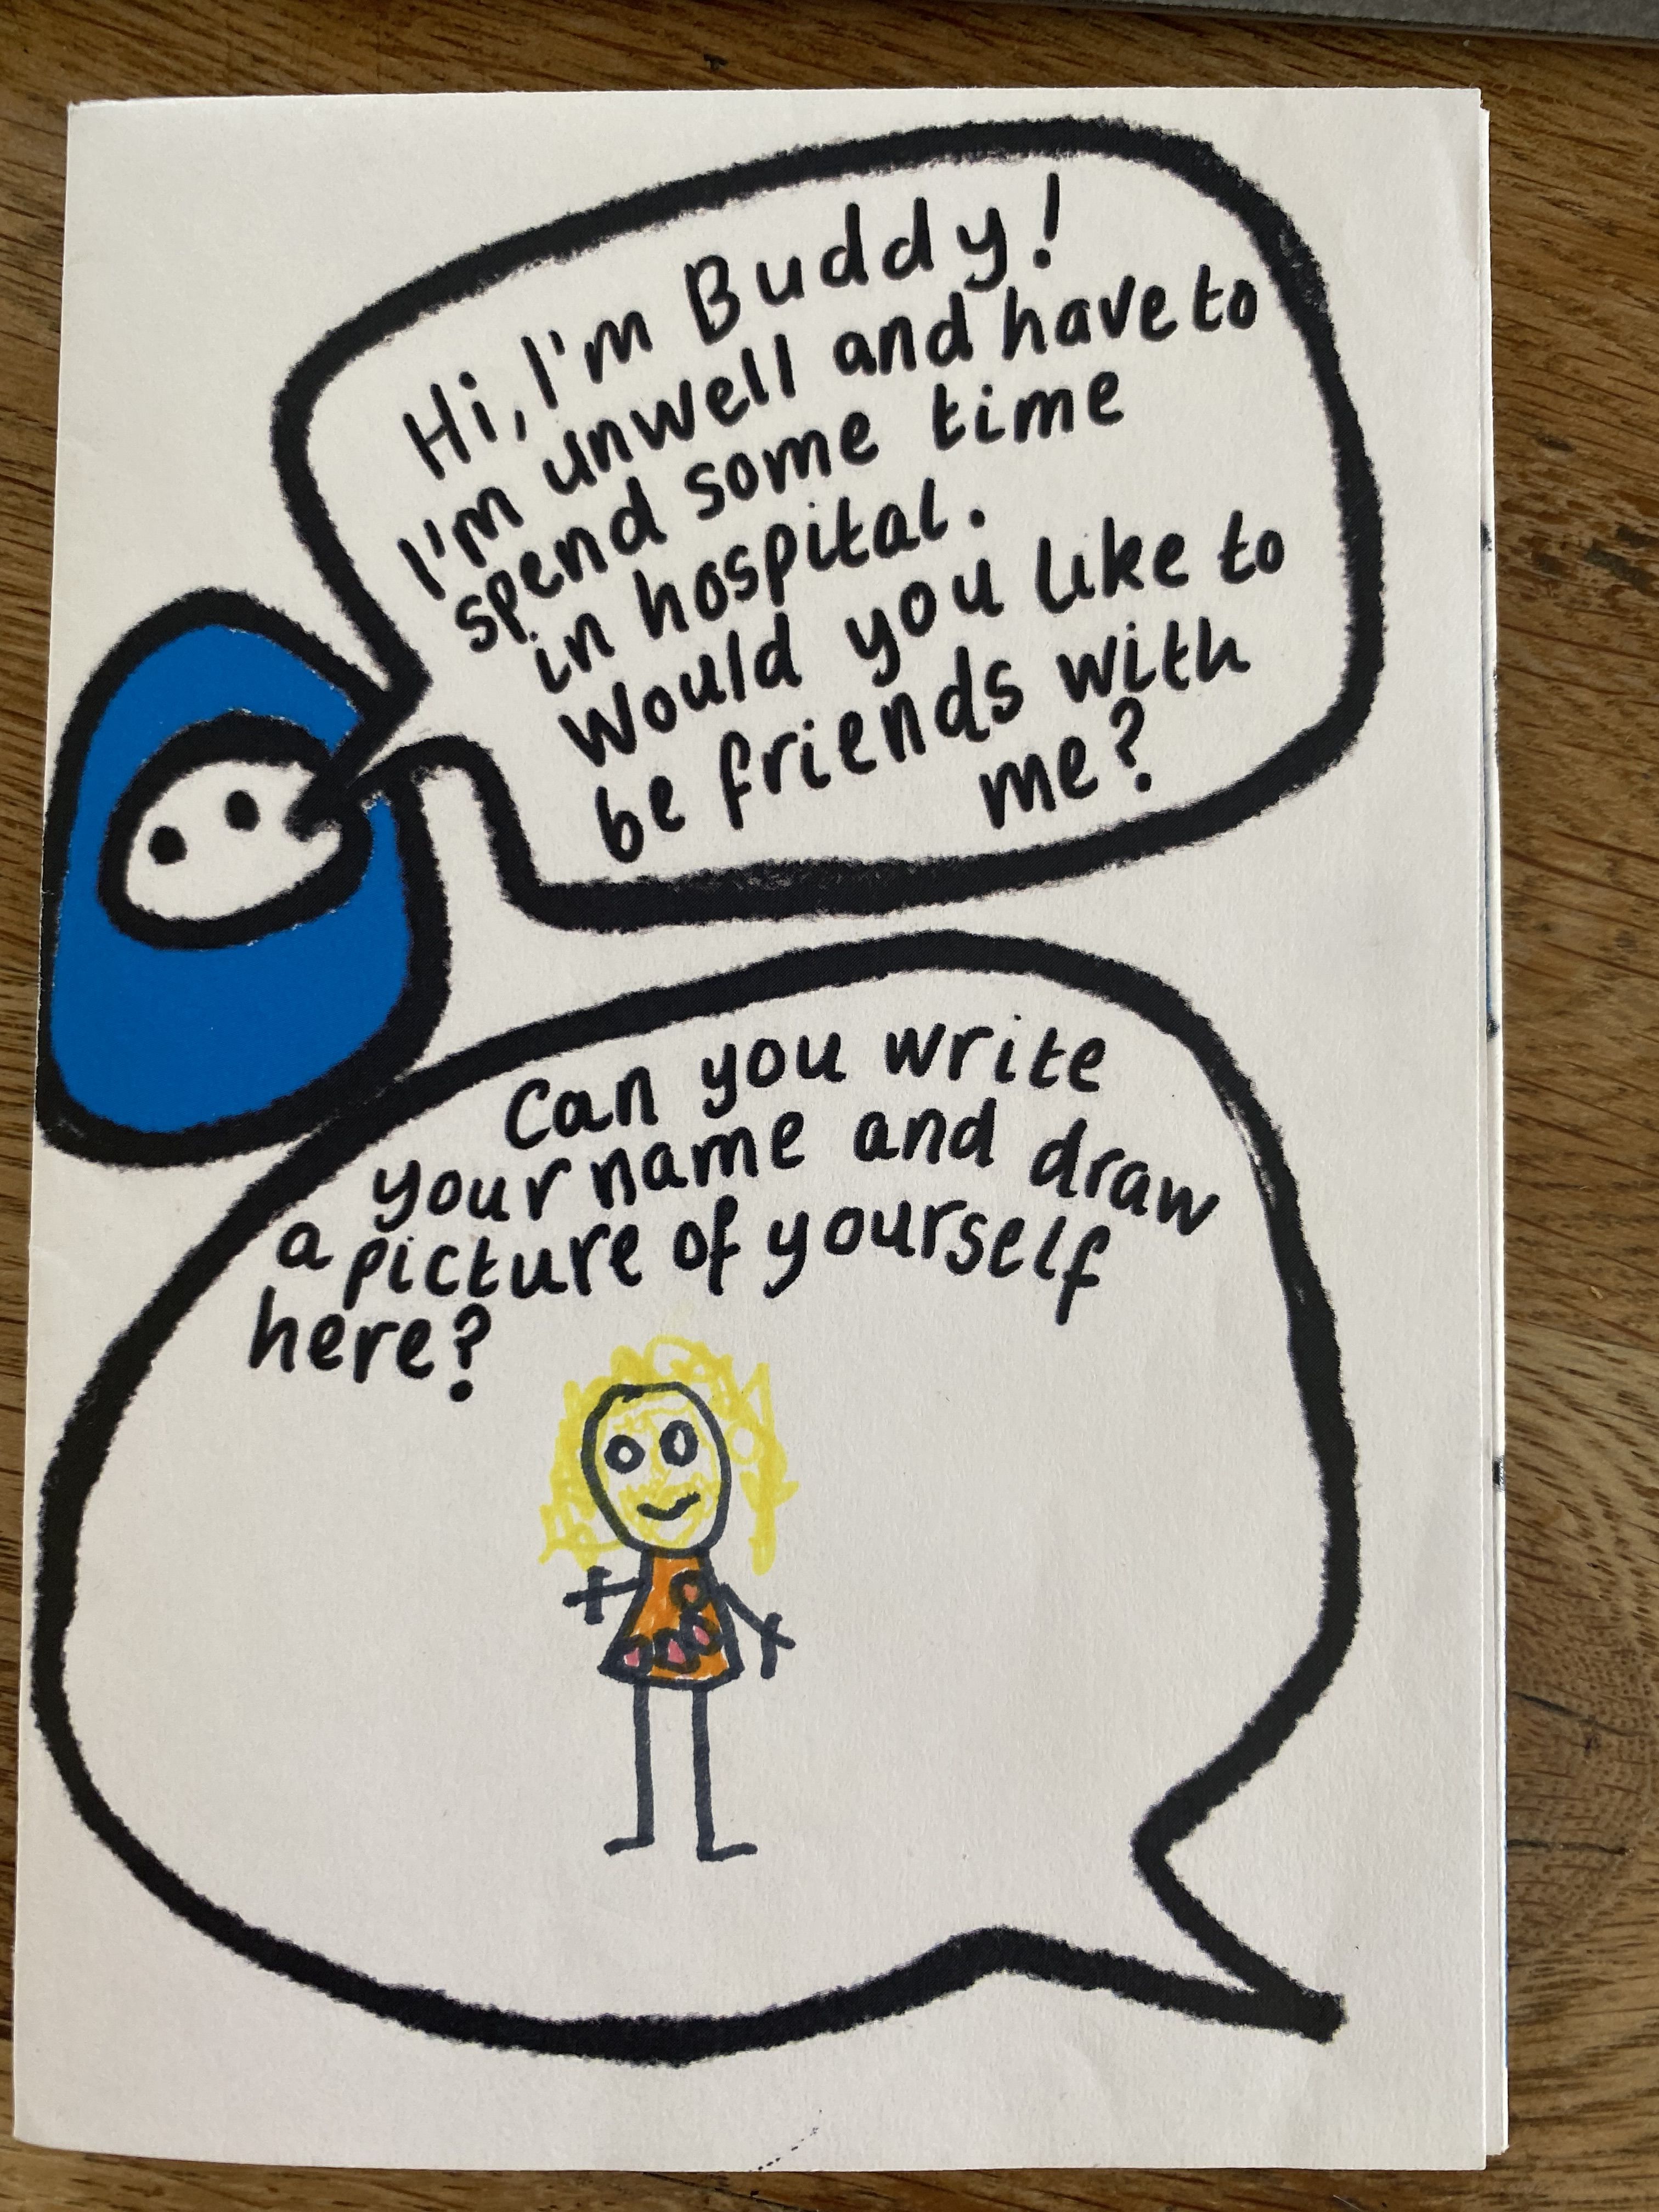 Hi, I'm Buddy!
I'm unwell and have to
spend some time
in hospital.
Would you like to
be friends with
me?
Can you write
your name and draw
a picture of yourself
here?